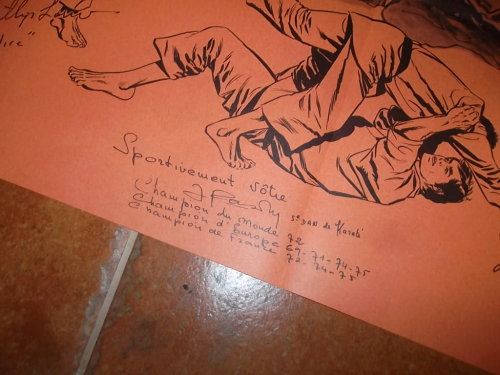 lice"
Sportivement vôtre
5e DAN de Karaté
Champion du Monde 72
Champion d'Europe 69-71-74-75
Champion de France 72-74-75